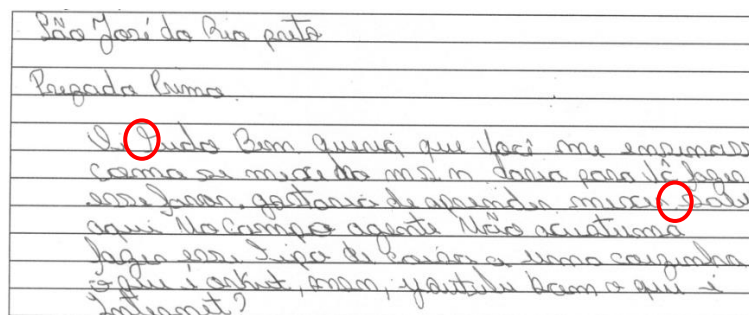 São José do Rio preto
Prezada Prima
Oi Tudo Bem queria que você me ensinass
como se mexe do msn daria para vê fazer
esse favor. gostaria de aprender mexer sabe
aqui No campo agente Não acustuma
fazer esse tipo de coisa a uma coizinha
o que é orkut, msn, youtube bem o que é
Internet?